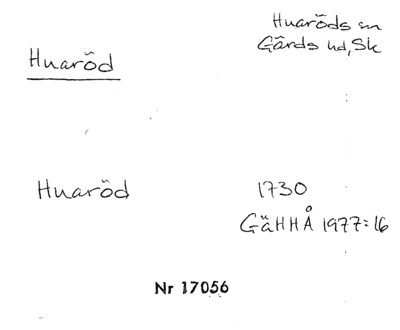 Huaröds sn
Gärds hd, Sk
Huaröd
Huaröd 1730
GäHHÅ 1977:16
Nr 17056